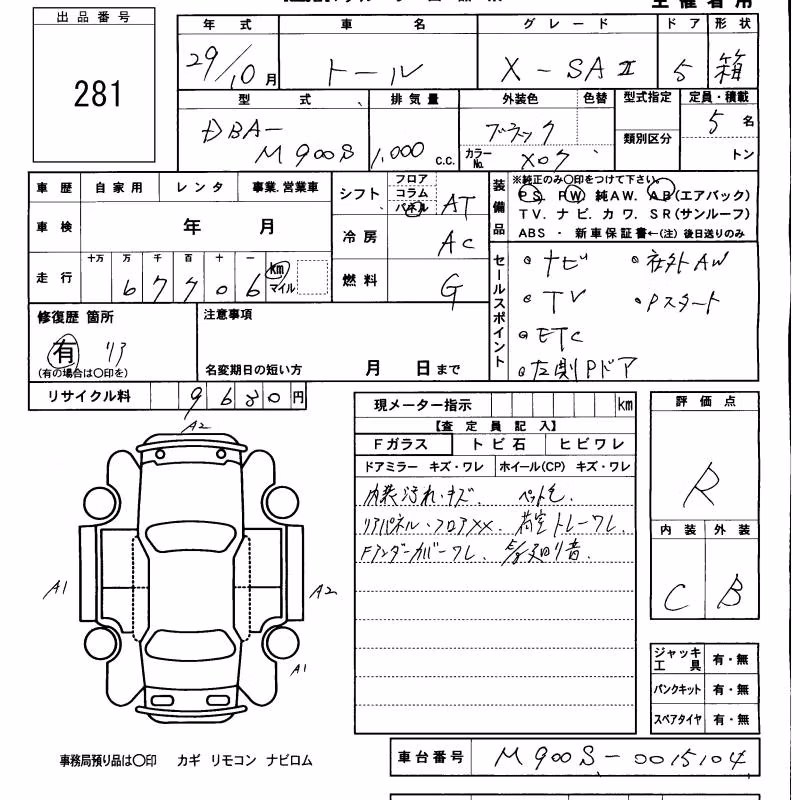 出品番号
281
年式 車名 グレード ドア 形状
29/10月 トール X-SAⅡ 5 箱
型式 排気量 外装色 色替 型式指定 定員・積載
DBA-M900S 1,000 c.c. ブラック 5名
カラーNo. X07 類別区分 トン
車歴 自家用 レンタ 事業.営業車
車検 年 月
走行 十万 万 千 百 十 一
6 7 7 0 6 km マイル
シフト フロア コラム パネル AT
冷房 AC
燃料 G
装備品
※純正のみ〇印をつけて下さい。
PS. PW. 純AW. AB(エアバック)
TV. ナビ. カワ. SR(サンルーフ)
ABS ・ 新車保証書←(注) 後日送りのみ
セールスポイント
ナビ ・社外AW
TV ・Pスタート
ETC
左側Pドア
修復歴 箇所
有 リア
(有の場合は〇印を)
注意事項
名変期日の短い方 月 日まで
リサイクル料 9630円
現メーター指示 km
【査定員記入】
Fガラス トビ石 ヒビワレ
ドアミラー キズ・ワレ ホイール(CP) キズ・ワレ
内装汚れ・キズ.
リアパネル・フロアXX. 荷室トレーワレ.
Fアンダーカバーワレ. 廻り音.
評価点
R
内装 外装
C B
A2
A1
A2
A1
ジャッキ工具 有・無
パンクキット 有・無
スペアタイヤ 有・無
事務局預り品は〇印 カギ リモコン ナビロム
車台番号 M900S-0015104